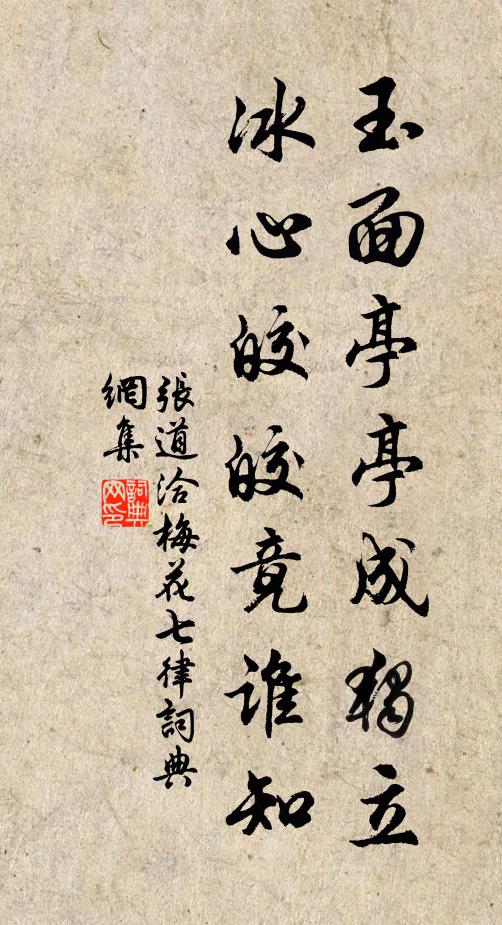 玉面亭亭成獨立
冰心皎皎竟誰知
張道洽梅花七律詞典
網集
詞典
网印